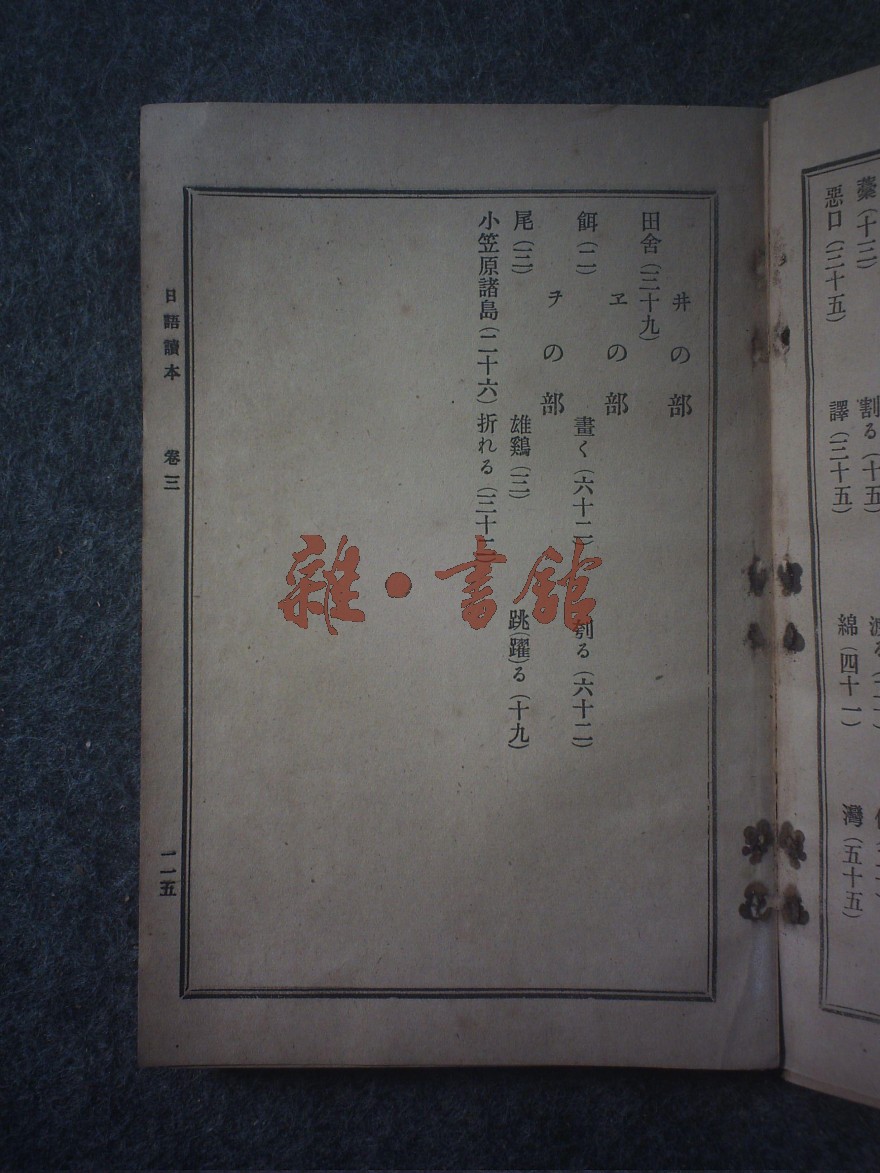 藁(十三)
割る(十五)
惡口(三十五)
譯(三十五)
綿(四十一)
灣(五十五)
井の部
田舍(三十九)
ヱの部
餌(二)
畫く(六十二)
刳る(六十二)
ヲの部
尾(三)
雄鷄(三)
跳(躍)る(十九)
小笠原諸島(二十六)
折れる
日語讀本 卷三 二一五
雜·書館